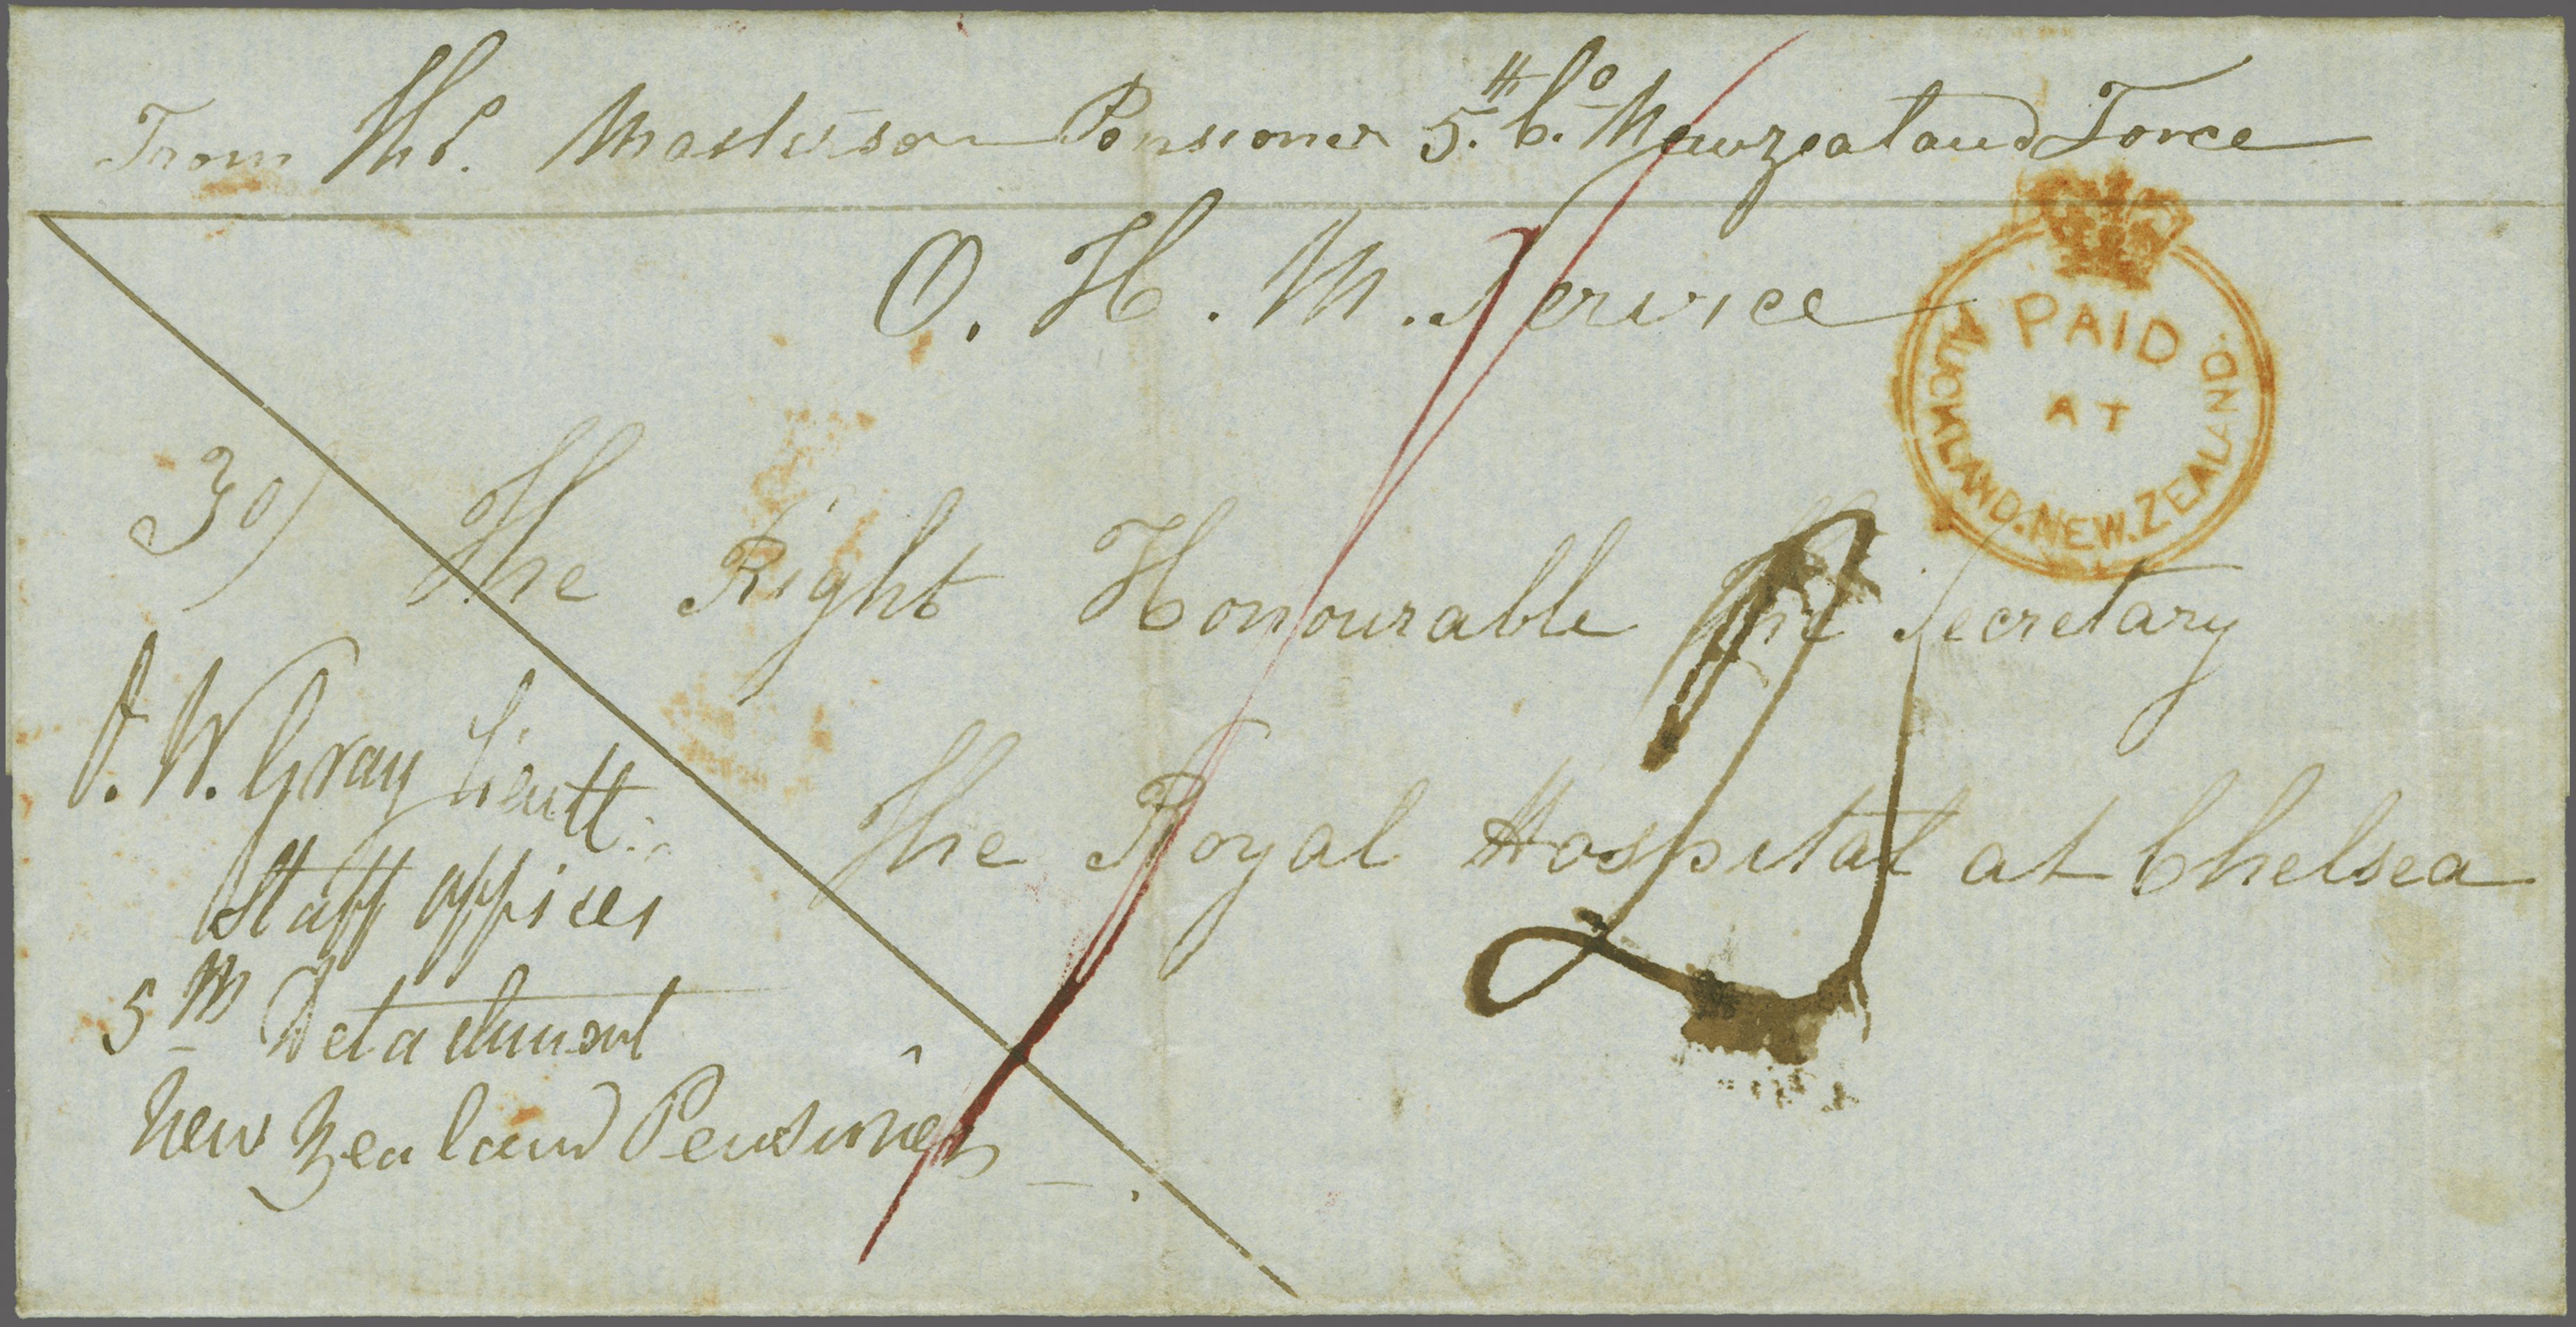 From Ths. Masterson Pensioner 5.th Co. Newzealand Force
O. H. M. Service
PAID
AT
AUCKLAND.NEW.ZEALAND.
30/
The Right Honourable The Secretary
J. W. Gray Lieutt.
The Royal Hospital at Chelsea
Staff officer
5th Detachment
New Zealand Pensioners